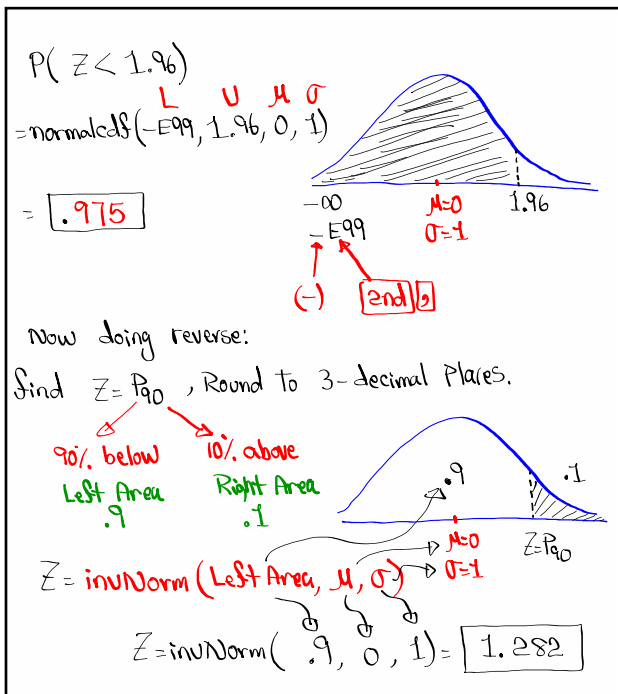 P( Z < 1.96)
L U μ σ
= normalcdf(-E99, 1.96, 0, 1)
= .975
-∞ μ=0 1.96
-E99 σ=1
(-) 2nd ,
Now doing reverse:
find Z = P90 , Round to 3-decimal Places.
90% below 10% above
Left Area Right Area
.9 .1
.9 .1
μ=0 Z=P90
σ=1
Z = invNorm(Left Area, μ, σ)
Z = invNorm( .9, 0, 1) = 1.282